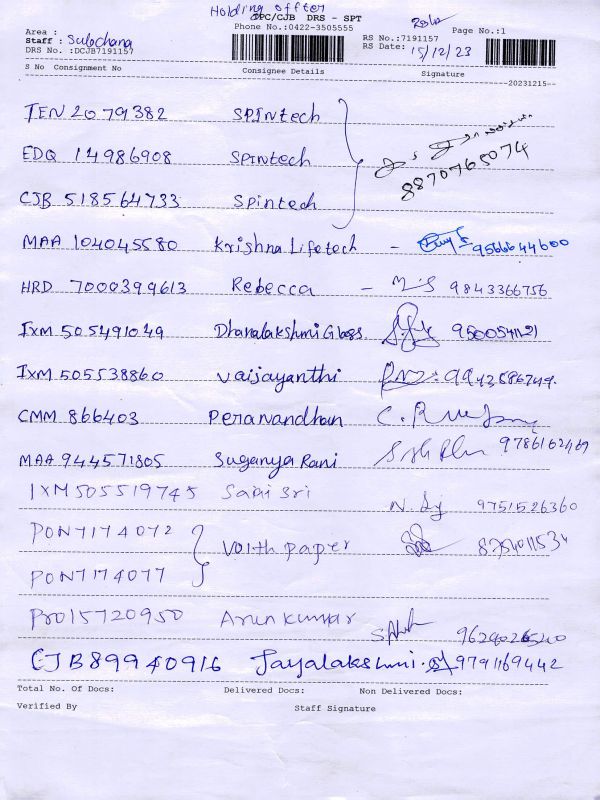 Holding offter
DPC/CJB DRS - SPT
Area :
Staff : Sulochana
DRS No.:DCJB7191157
Phone No.:0422-3505555
RS No.:7191157
RS Date: 15/12/23
Page No.:1
S No Consignment No Consignee Details Signature
20231215
TEN 2079382 SPINtech
EDQ 14986908 SPINtech
8870765074
CJB 518564733 SPintech
MAA 104045580 Krishna Lifetech - 9566644600
HRD 7000399613 Rebecca - M.S 9843366756
IXM 505491049 Dhanalakshmi Glass
IXM 505538860 Vaijayanthi
CMM 866403 Peranandhan
MAA 944571805 Suganya Rani 9786162469
IXM505519745 Sai Sri 9751526360
PON7174072
Voith paper 8754011534
PON7174077
PRO15720950 Arun kumar
CJB89940916 Jayalakshmi 9791169442
Total No. Of Docs: Delivered Docs: Non Delivered Docs:
Verified By Staff Signature